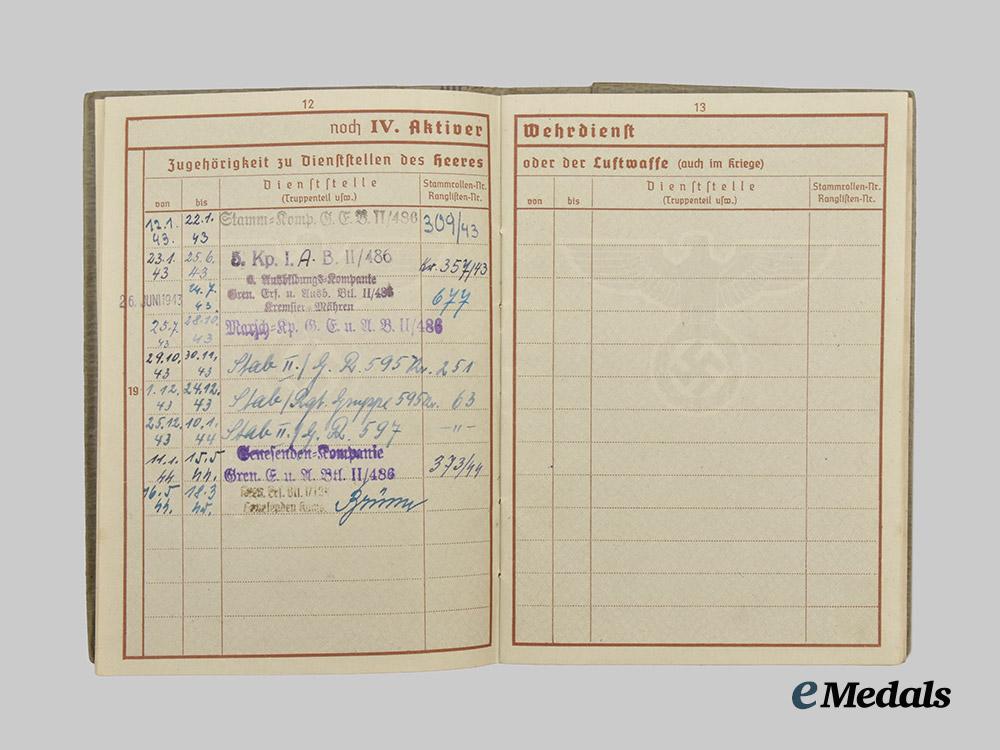 12
noch IV. Aktiver
Zugehörigkeit zu Dienststellen des Heeres
von bis Dienststelle (Truppenteil usw.) Stammrollen-Nr. Ranglisten-Nr.
12.1. 43. 22.1. 43 Stamm-Komp. G. E. B. II/486 309/43
23.1 43 25.6. 43 5. Kp. I. A. B. II/486 Kr. 357/43
26. JUNI 1943 24.7. 43. 6. Ausbildungs-Kompanie
Gren. Ers. u. Ausb. Btl. II/486 677
Kremsier-Mähren
25.7. 43 28.10. 43 Marsch-Kp. G. E. u. A. B. II/486
29.10. 43 30.11. 43 Stab II./G. R. 595 Nr. 251
19 1.12. 43 24.12. 43 Stab/Rgt. Gruppe 595 Nr. 63
25.12. 43 10.1. 44 Stab II./G. R. 597 -"-
11.1. 44 15.5 44. Genesenden-Kompanie
Gren. E. u. A. Btl. II/486 373/44
16.5 44. 18.3 45.
13
Wehrdienst
oder der Luftwaffe (auch im Kriege)
von bis Dienststelle (Truppenteil usw.) Stammrollen-Nr. Ranglisten-Nr.
eMedals